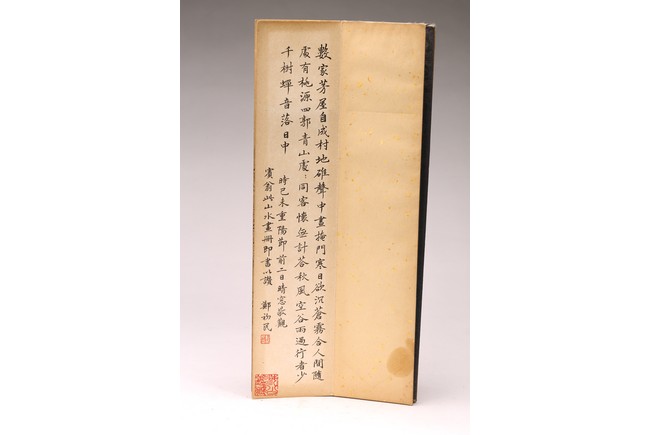 數家芳屋自成村地碓聲中晝掩門寒日欲沉蒼霧合人間隨
處有桃源四郭青山處:同客懷無計答秋風空谷雨過行者少
千樹蟬音落日中
時己未重陽節前二日晴窓敬觀
賓翁此山水畫冊即書以讚 鄭初民